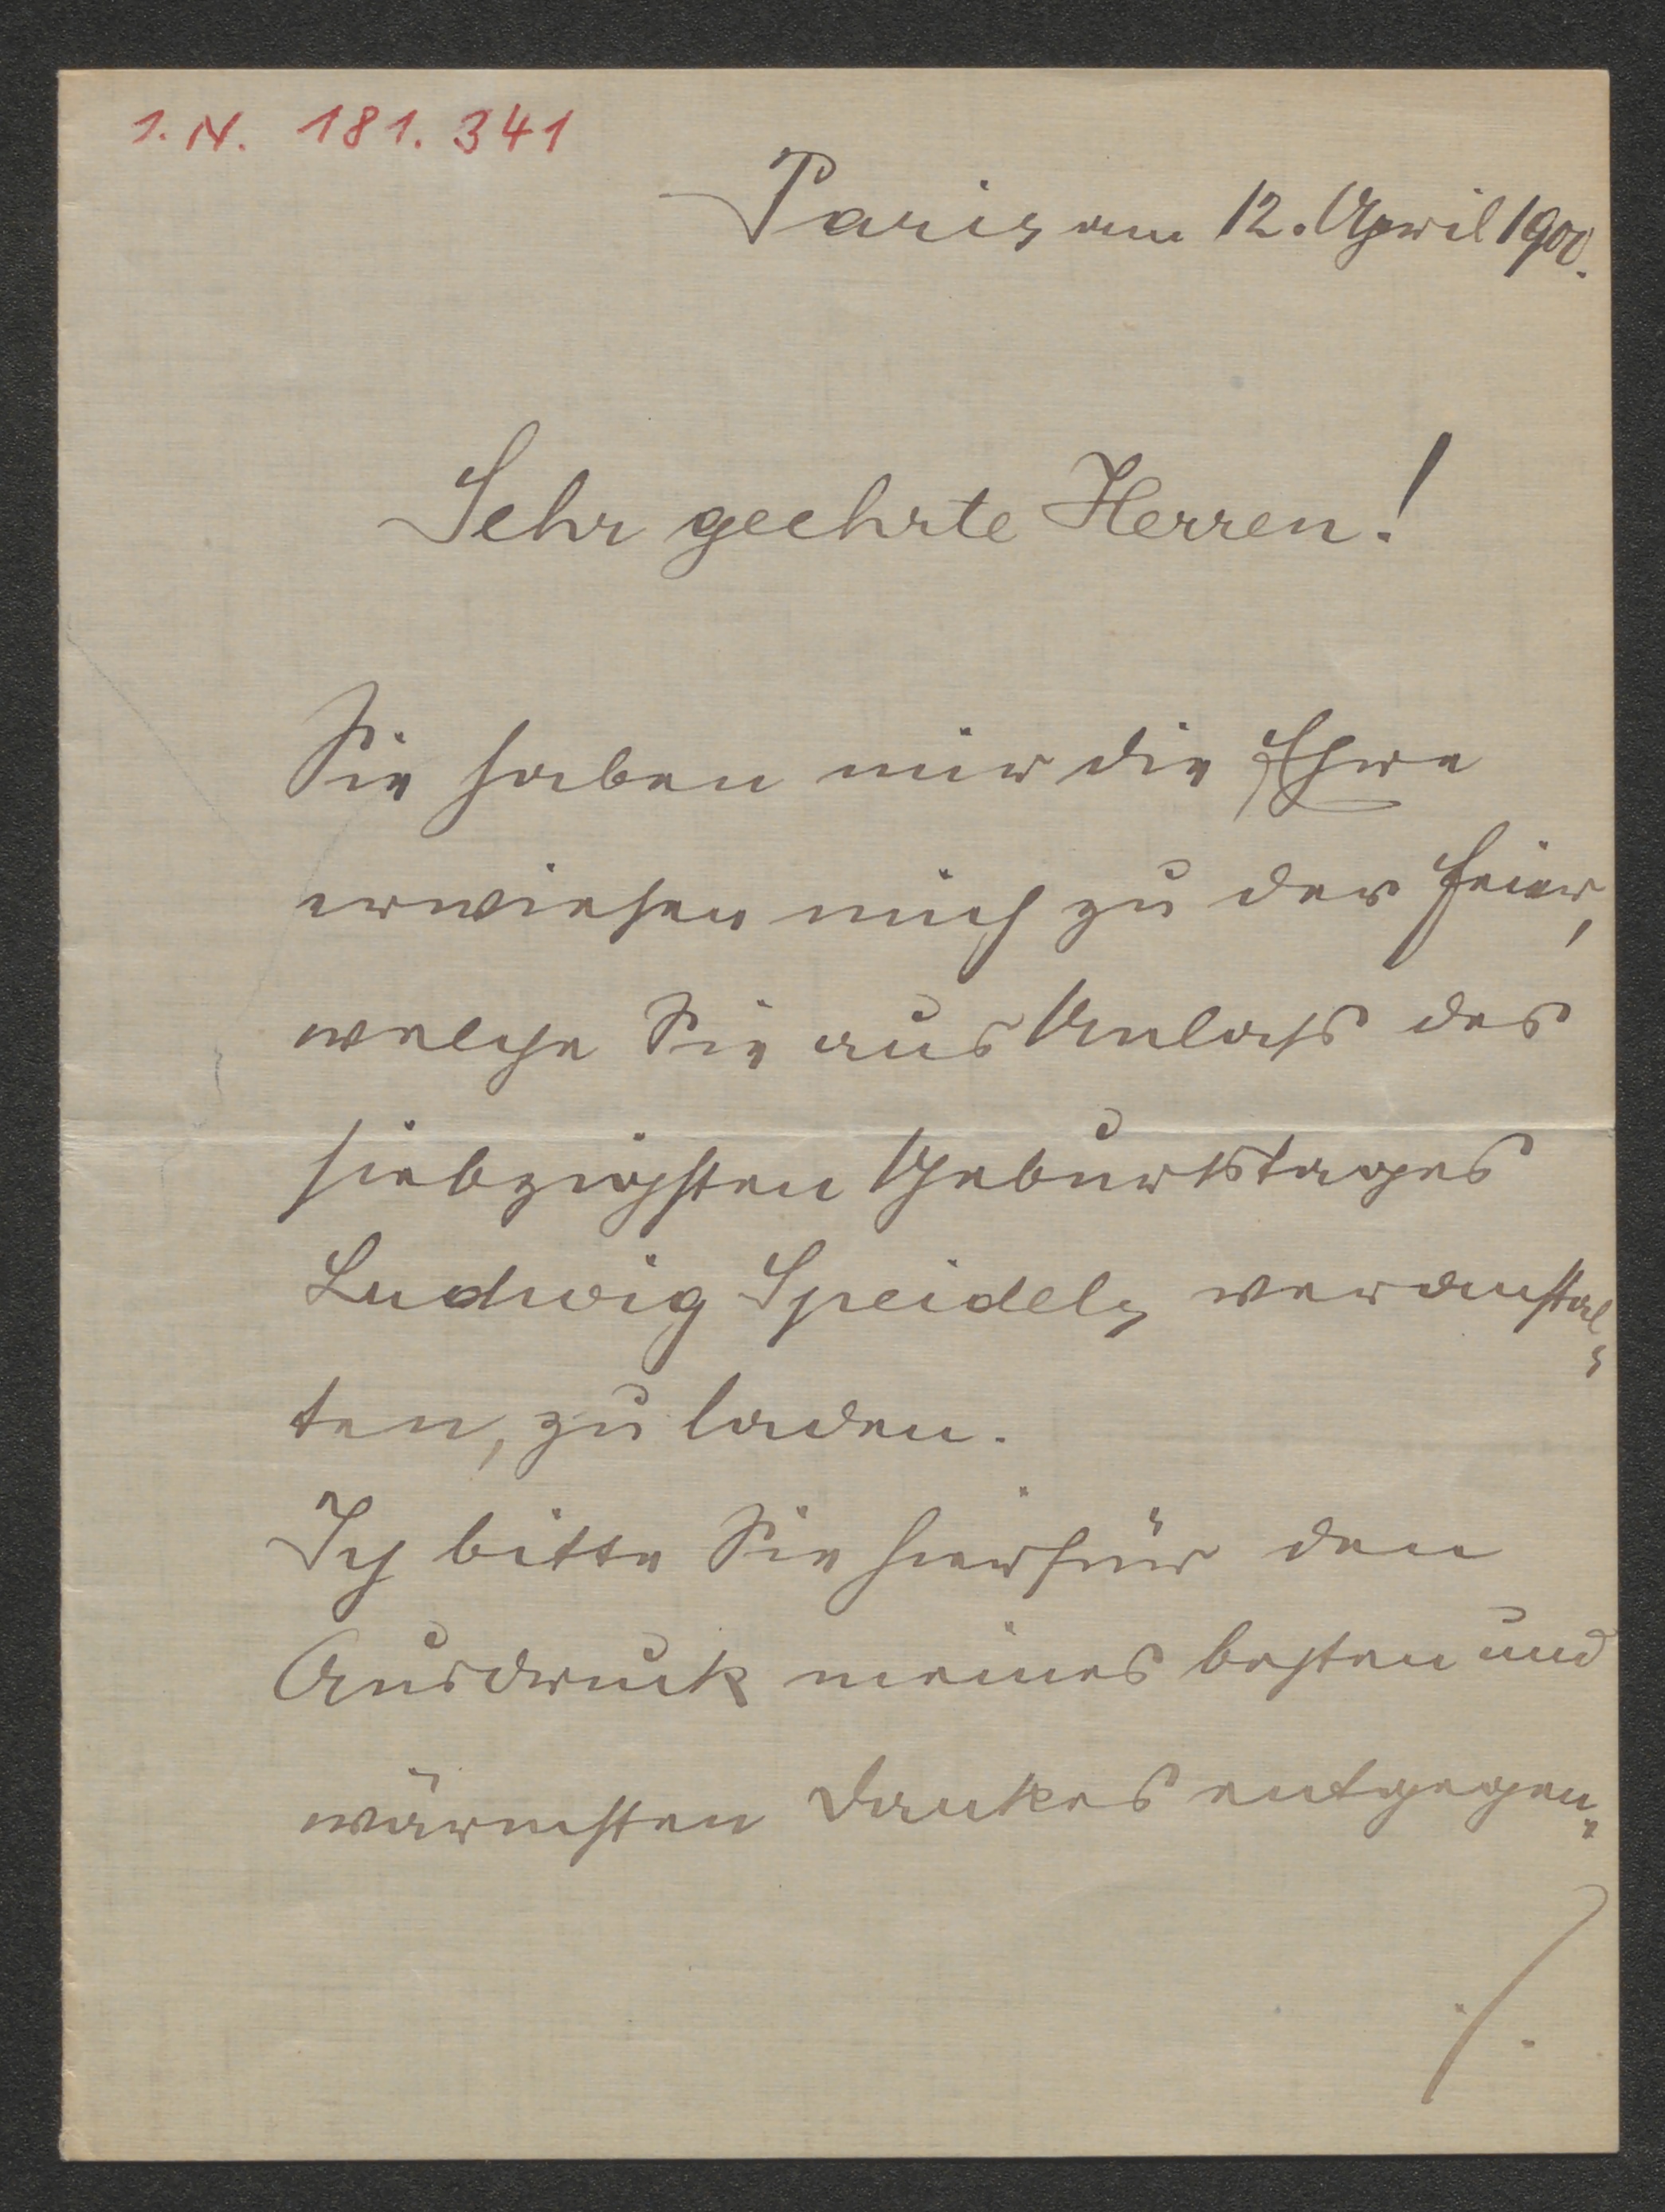 I. N. 181.341
Paris am 12. April 1900.
Sehr geehrte Herren!
Sie haben mir die Ehre
erwiesen mich zu der Feier,
welche Sie aus Anlass des
siebzigsten Geburtstages
Ludwig Speidels veranstal-
ten, zu laden.
Ich bitte Sie hierfür den
Ausdruck meines besten und
wärmsten Dankes entgegen-
./.